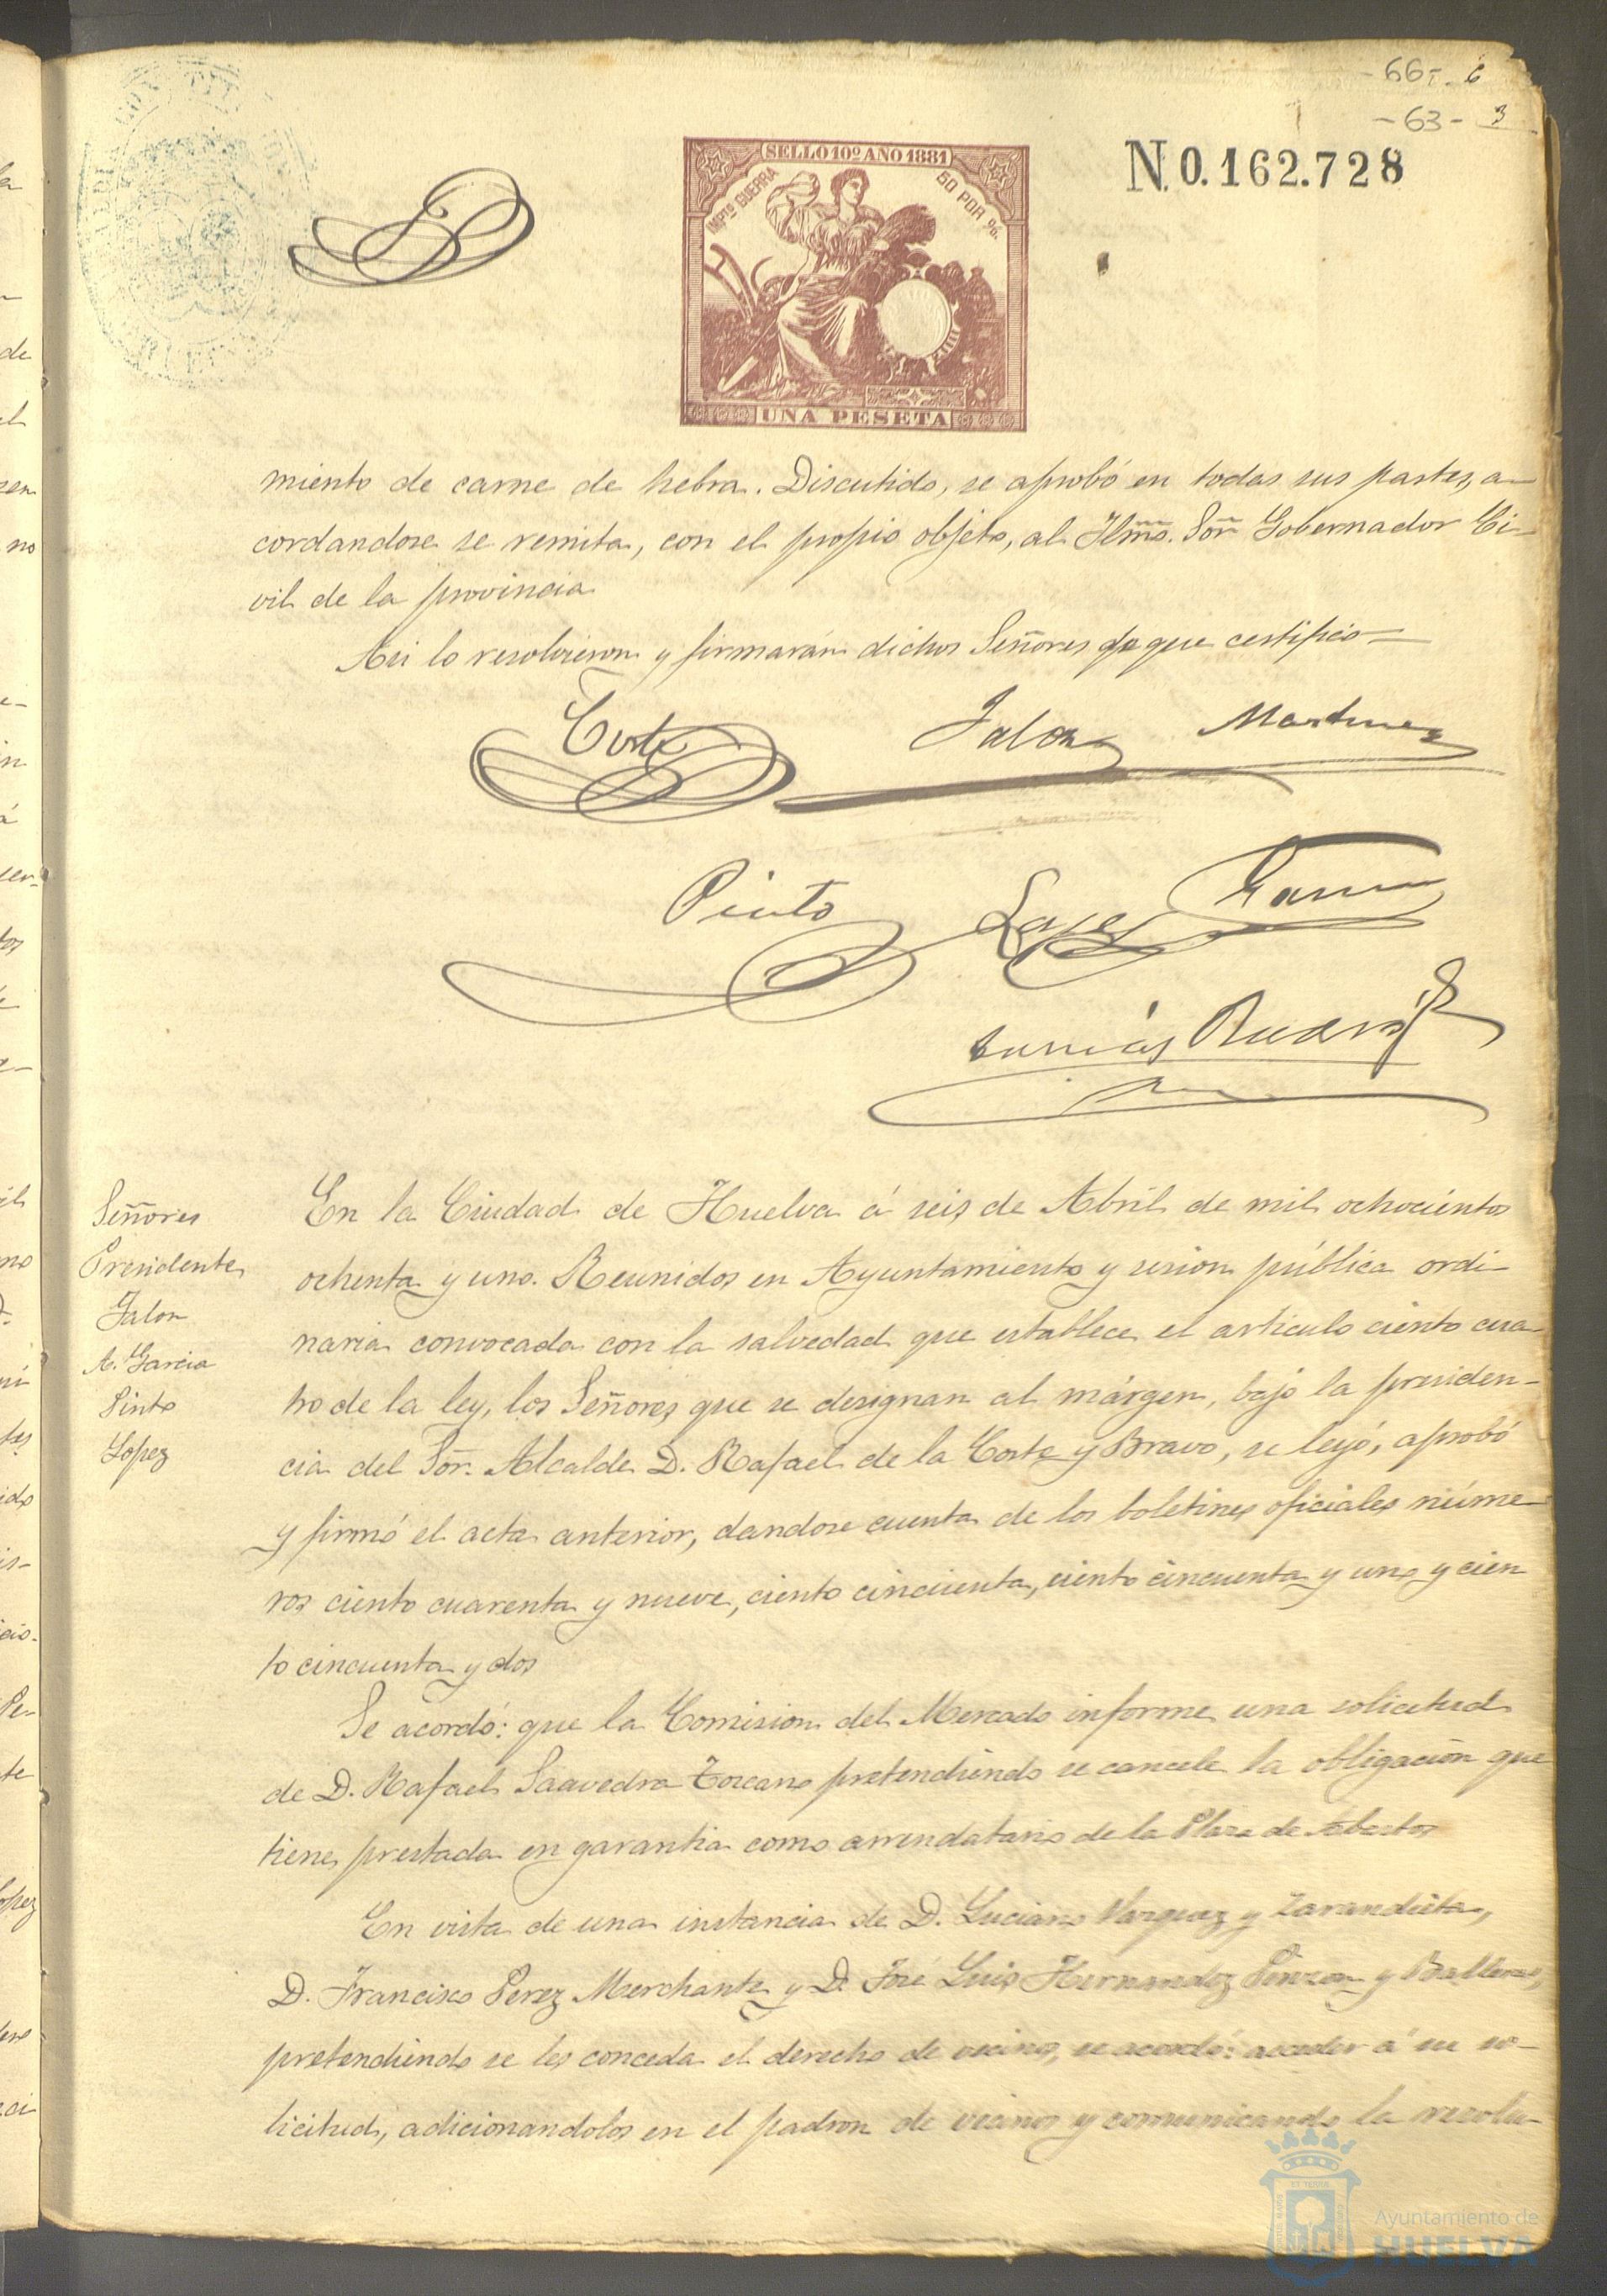 -66- 6
-63- 3
SELLO 10º AÑO 1881
IMPTO GUERRA
50 POR %.
UNA PESETA
N. 0.162.728
miento de carne de hebra. Discutido, se aprobó en todas sus partes, a-
cordandose se remita, con el propio objeto, al Ilmo. Sor Gobernador Ci-
vil de la provincia
Asi lo resolvieron y firmarán dichos Señores de que certifico=
Corte Jalon Martinez
Pinto Lopez Garcia
Señores
Presidente
Jalon
A. Garcia
Pinto
Lopez
En la Ciudad de Huelva á seis de Abril de mil ochocientos
ochenta y uno. Reunidos en Ayuntamiento y sesion pública ordi-
naria convocada con la salvedad que establece el articulo ciento cua-
tro de la ley, los Señores que se designan al márgen, bajo la presiden-
cia del Sor. Alcalde D. Rafael de la Corte y Bravo, se leyó, aprobó
y firmó el acta anterior, dandose cuenta de los boletines oficiales núme-
ros ciento cuarenta y nueve, ciento cincuenta, ciento cincuenta y uno y cien
to cincuenta y dos
Se acordó: que la Comision del Mercado informe una solicitud
de D. Rafael Saavedra Toscano pretendiendo se cancele la obligación que
tiene prestada en garantia como arrendatario de la Plaza de Abastos
En vista de una instancia de D. Luciano Vazquez y Zarandieta,
D. Francisco Perez Merchante y D. José Luis Hernandez Pinzon y Balleras,
pretendiendo se les conceda el derecho de vecino, se acordó: acceder á su so-
licitud, adicionandolos en el padron de vecinos y comunicando la resolu-
Ayuntamiento de
HUELVA